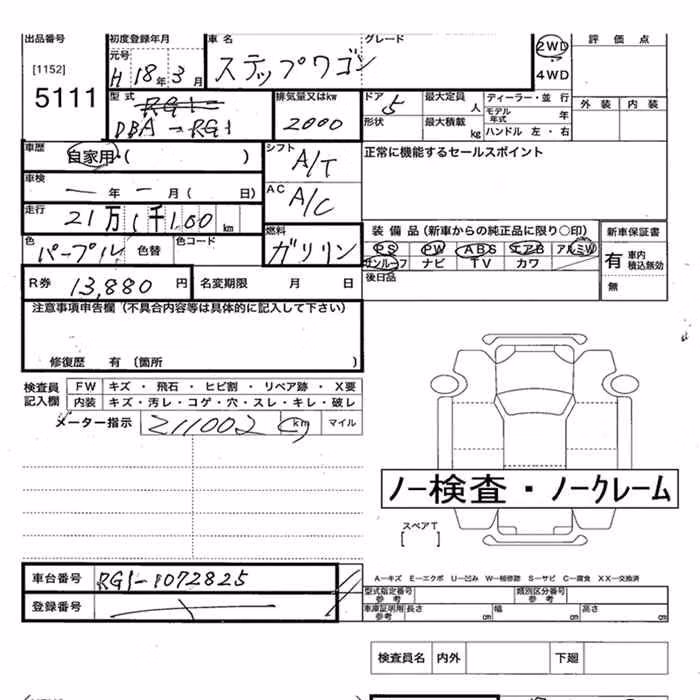 出品番号 初度登録年月 車名 グレード 2WD 評価点
[1152] 元号 ステップワゴン 4WD
5111 H 18年 3月 外装 内装
型式 排気量又はkw ドア 5 最大定員 人 ディーラー・並行
RG1 モデル年式 年
DBA-RG1 2000 形状 最大積載 kg ハンドル 左・右
車歴 自家用・( ) シフト A/T 正常に機能するセールスポイント
車検 ー年 ー月 ( 日) AC A/C
走行 21万1千100 km 燃料 ガソリン 装備品(新車からの純正品に限り○印) 新車保証書
色 パープル 色替 色コード PS PW ABS エアB アルミW 有 車内積込無効
サンルーフ ナビ TV カワ
R券 13,880円 名変期限 月 日 後日品 無
注意事項申告欄(不具合内容等は具体的に記入して下さい)
修復歴 有 (箇所 )
検査員記入欄 FW キズ・飛石・ヒビ割・リペア跡・X要
内装 キズ・汚レ・コゲ・穴・スレ・キレ・破レ
メーター指示 211002 km マイル
ノー検査・ノークレーム
スペアT
[ ]
車台番号 RG1-1072825 A－キズ E－エクボ U－凹み W－補修跡 S－サビ C－腐食 XX－交換済
型式指定番号 参考 類別区分番号 参考
登録番号 車庫証明用 参考 長さ cm 幅 cm 高さ cm
検査員名 内外 下廻